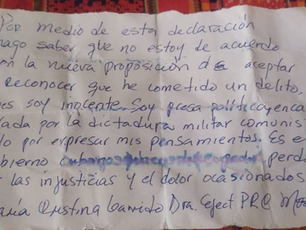 Por medio de esta declaración
hago saber que no estoy de acuerdo
con la nueva proposición de aceptar
reconocer que he cometido un delito,
es soy inocente. Soy presa política y enca
lada por la dictadura militar comunis
lo por expresar mis pensamientos. Es e
bierno perdo
las injusticias y el dolor ocasionados
aría Cristina Garrido Dra. Eject PRC